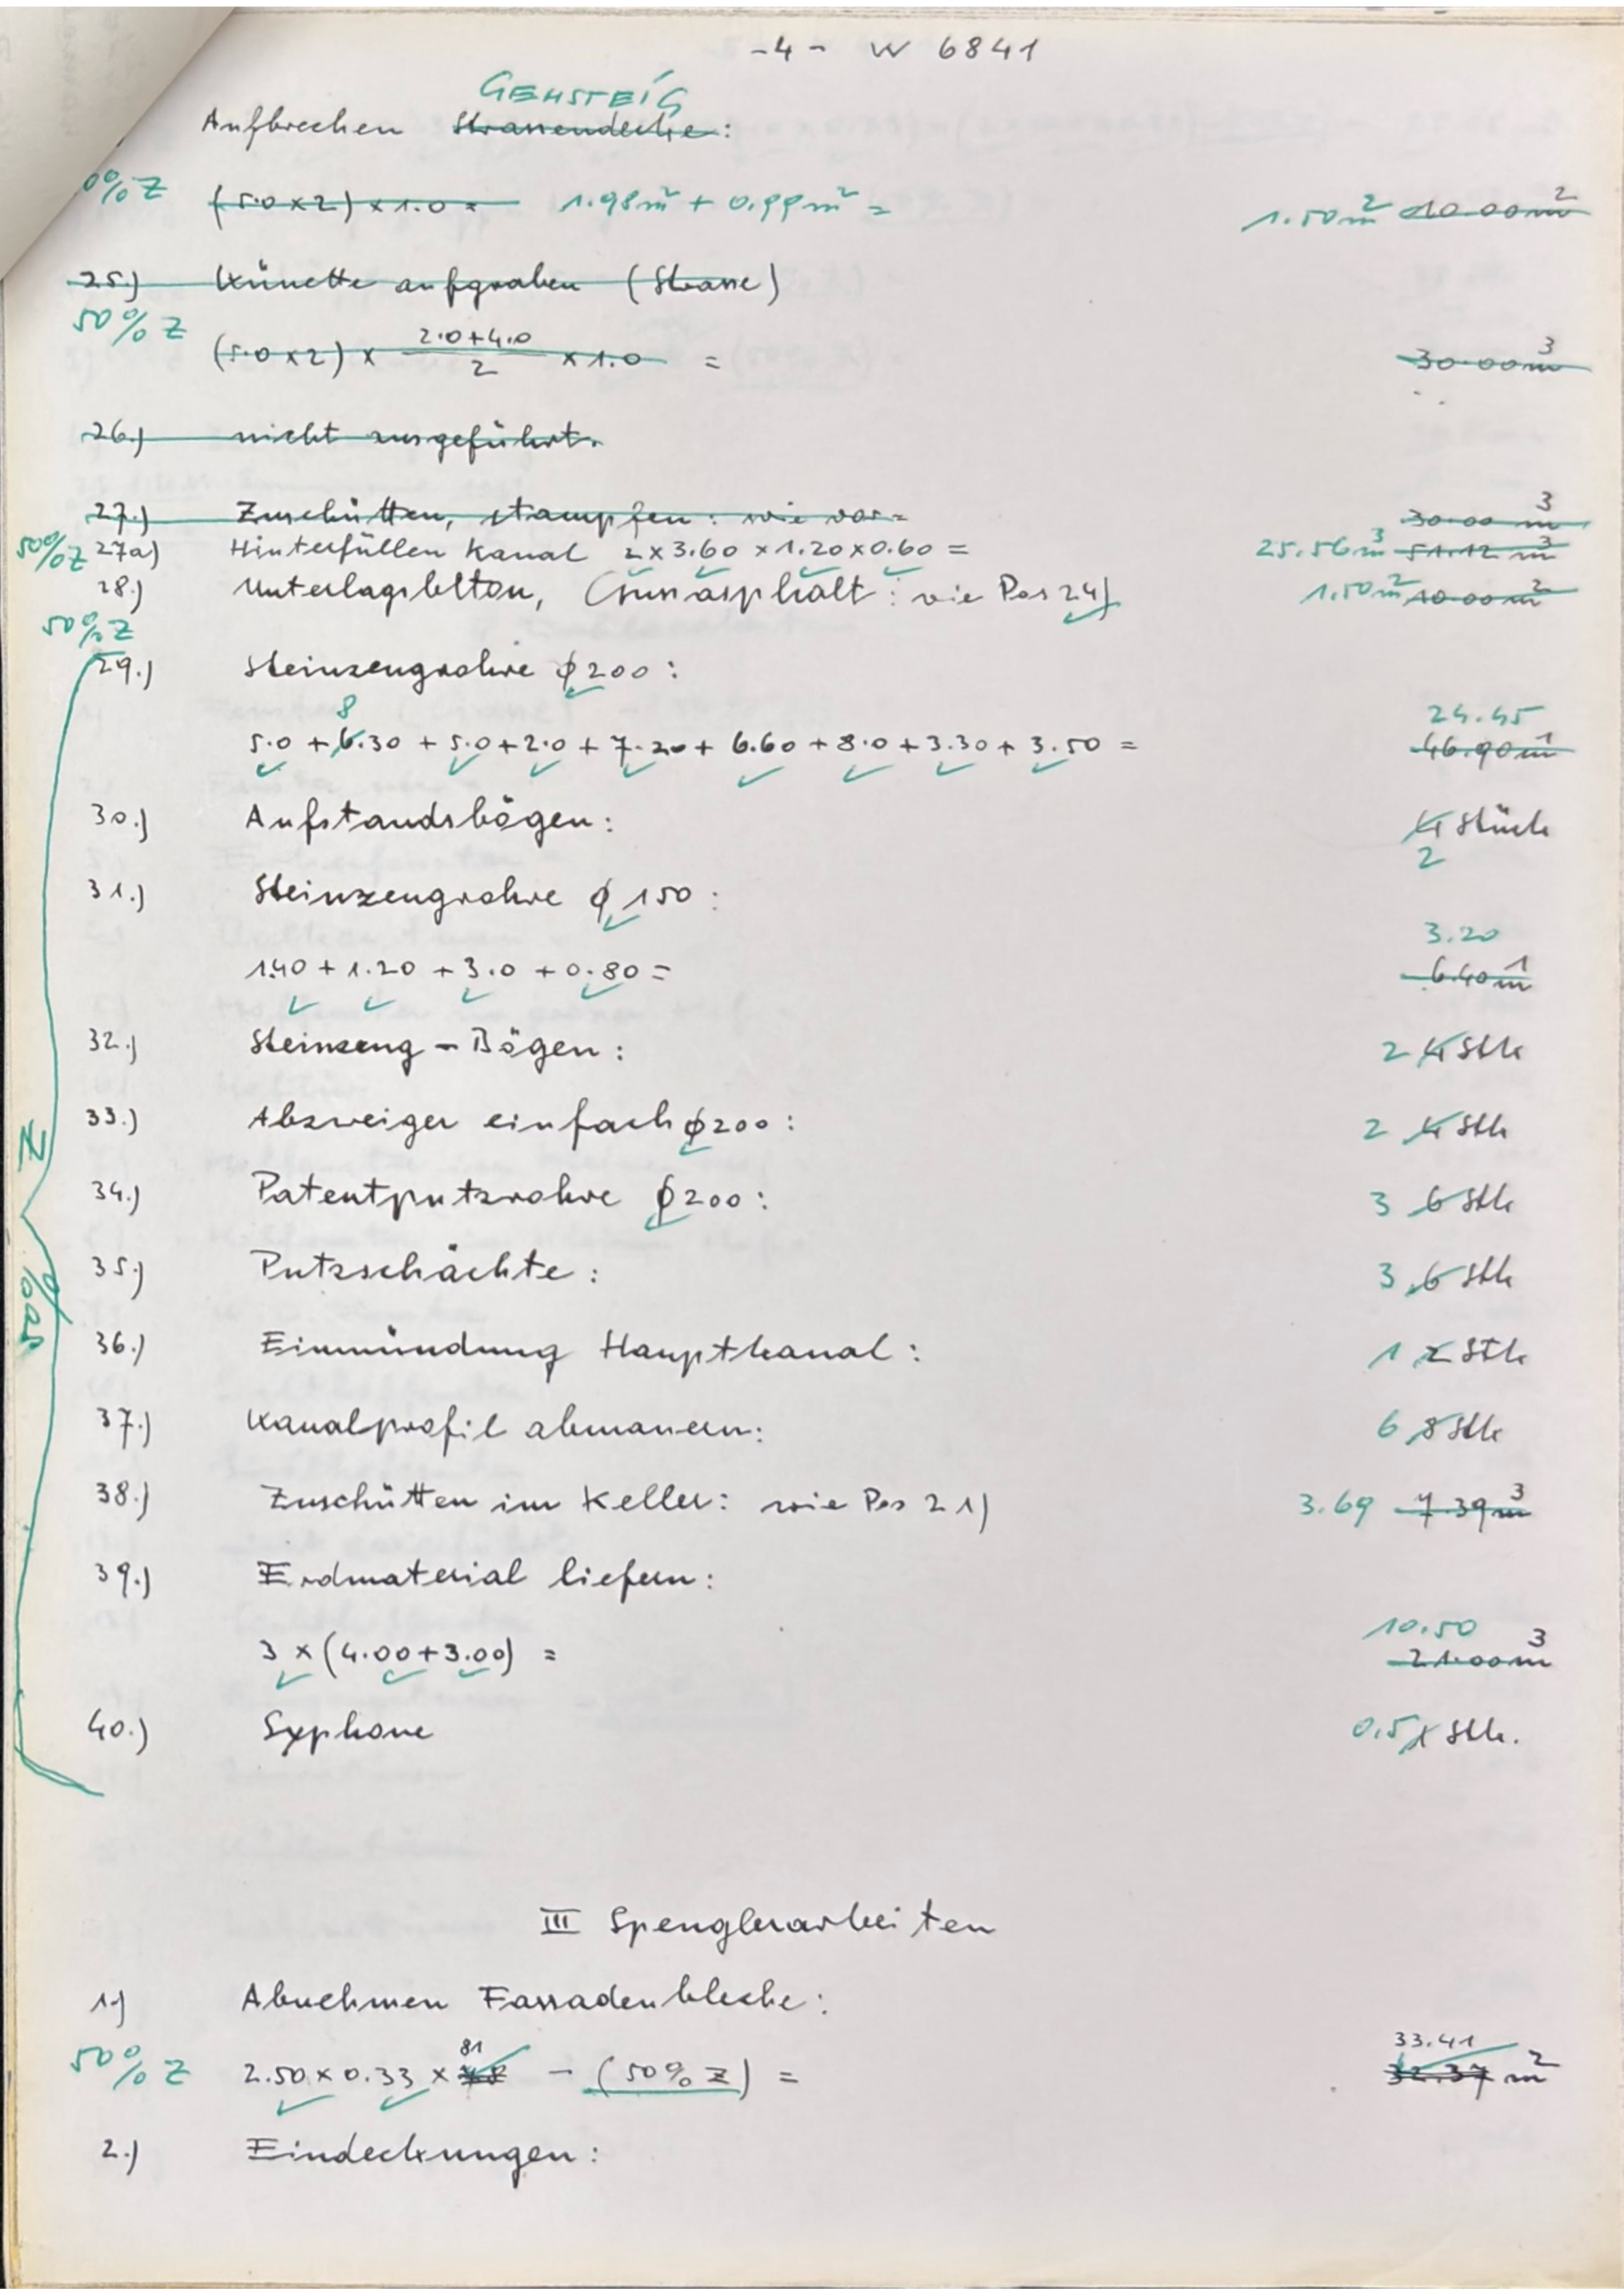 -4- W 6841
GEHSTEIG
Aufbrechen Strassendecke:
0% Z (5.0x2) x 1.0 = 1.98m² + 0.99m² = 1.50m² 10.00m²
25.) Künette aufgraben (Strasse)
50% Z
(5.0x2) x (2.0+4.0)/2 x 1.0 = 30.00m³
26.) nicht ausgeführt.
27.) Zuschütten, stampfen: wie vor= 30.00 m³
50% Z 27a) Hinterfüllen Kanal 2x3.60x1.20x0.60= 25.56m³ 51.12 m³
28.) Unterlagsbeton, Gussasphalt: wie Pos 24) 1.50m² 10.00m²
50% Z
29.) Steinzeugrohre ϕ200:
8 24.45
5.0 + 6.30 + 5.0 + 2.0 + 7.20 + 6.60 + 8.0 + 3.30 + 3.50 = 46.90m¹
30.) Aufstandsbögen: 4 Stück
2
31.) Steinzeugrohre ϕ 150:
3.20
1.40 + 1.20 + 3.0 + 0.80 = 6.40m¹
32.) Steinzeug - Bögen: 2 4 Stk
33.) Abzweiger einfach ϕ200: 2 4 Stk
34.) Patentputzrohre ϕ200: 3 6 Stk
Z
35.) Putzschächte: 3 6 Stk
50%
36.) Einmündung Hauptkanal: 1 2 Stk
37.) Kanalprofil abmauern: 6 8 Stk
38.) Zuschütten im Keller: wie Pos 21) 3.69 7.39m³
39.) Erdmaterial liefern:
10.50
3 x (4.00+3.00) = 21.00m³
40.) Syphone 0.5 1 Stk.
III Spenglerarbeiten
1.) Abnehmen Fassadenbleche:
81 33.41
50% Z 2.50 x 0.33 x 78 - (50% Z) = 32.37 m²
2.) Eindeckungen: